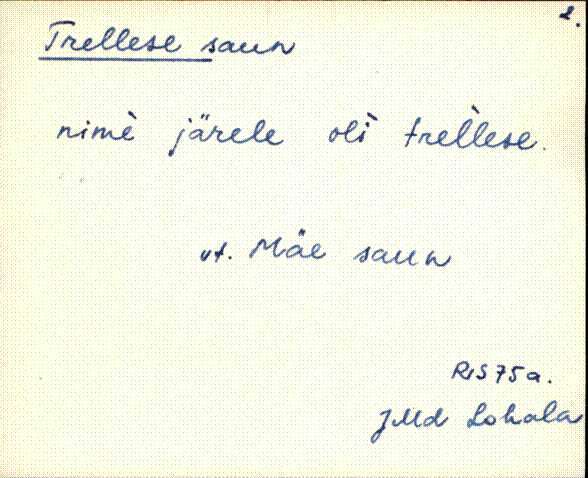 2.
Trellese saun
nimè järele oli trèllese.
vt. Mäe saun
RIS 75 a.
JMd Lohala